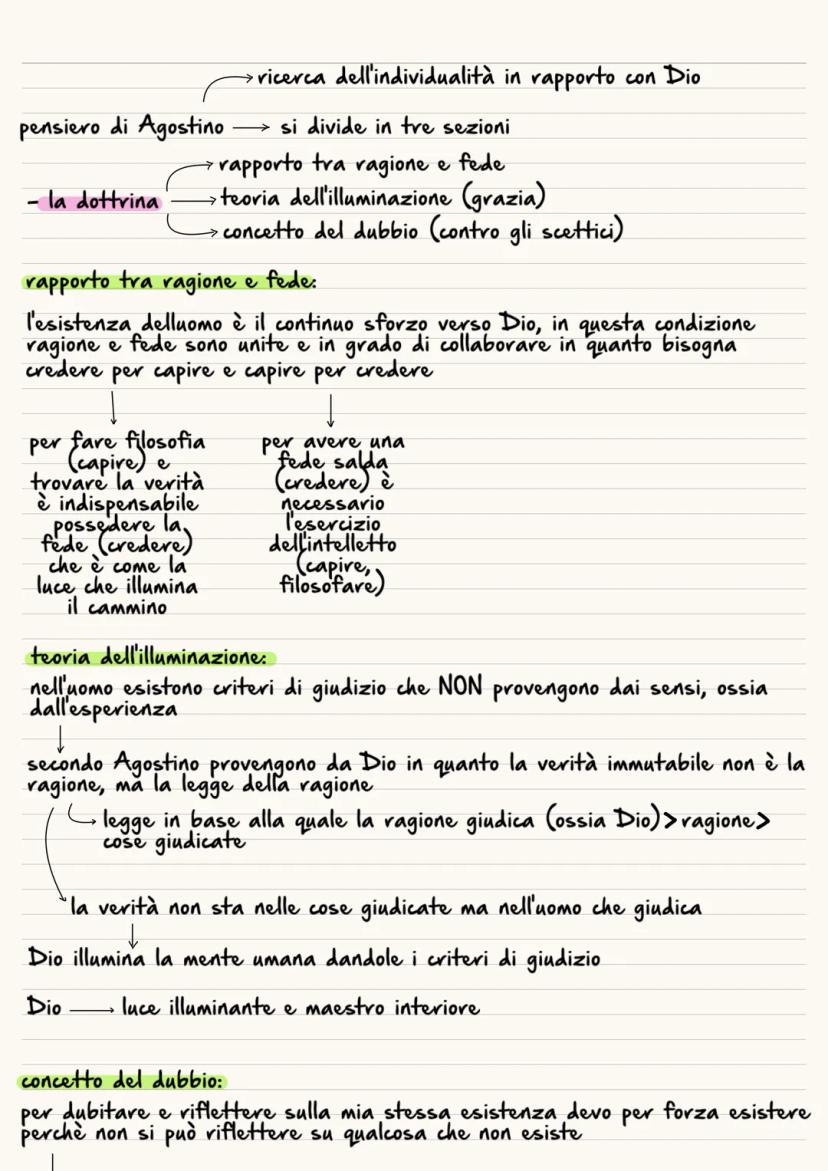 ricerca dell'individualità in rapporto con Dio
pensiero di Agostino → si divide in tre sezioni
rapporto tra ragione e fede
- la dottrina → teoria dell'illuminazione (grazia)
concetto del dubbio (contro gli scettici)
rapporto tra ragione e fede:
l'esistenza delluomo è il continuo sforzo verso Dio, in questa condizione
ragione e fede sono unite e in grado di collaborare in quanto bisogna
credere per capire e capire per credere
per fare filosofia
(capire) e
trovare la verità
è indispensabile
possedere la
fede (credere)
che è come la
luce che illumina
il cammino
per avere una
fede salda
(credere) è
necessario
l'esercizio
dell'intelletto
(capire,
filosofare)
teoria dell'illuminazione:
nell'uomo esistono criteri di giudizio che NON provengono dai sensi, ossia
dall'esperienza
secondo Agostino provengono da Dio in quanto la verità immutabile non è la
ragione, ma la legge della ragione
legge in base alla quale la ragione giudica (ossia Dio)>ragione>
cose giudicate
la verità non sta nelle cose giudicate ma nell'uomo che giudica
Dio illumina la mente umana dandole i criteri di giudizio
Dio → luce illuminante e maestro interiore
concetto del dubbio:
per dubitare e riflettere sulla mia stessa esistenza devo per forza esistere
perchè non si può riflettere su qualcosa che non esiste